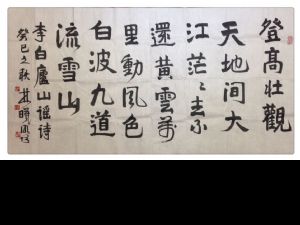 登高壮觀
天地间大
江茫茫去不
還黄雲萬
里動風色
白波九道
流雪山
李白廬山谣诗
癸巳之秋